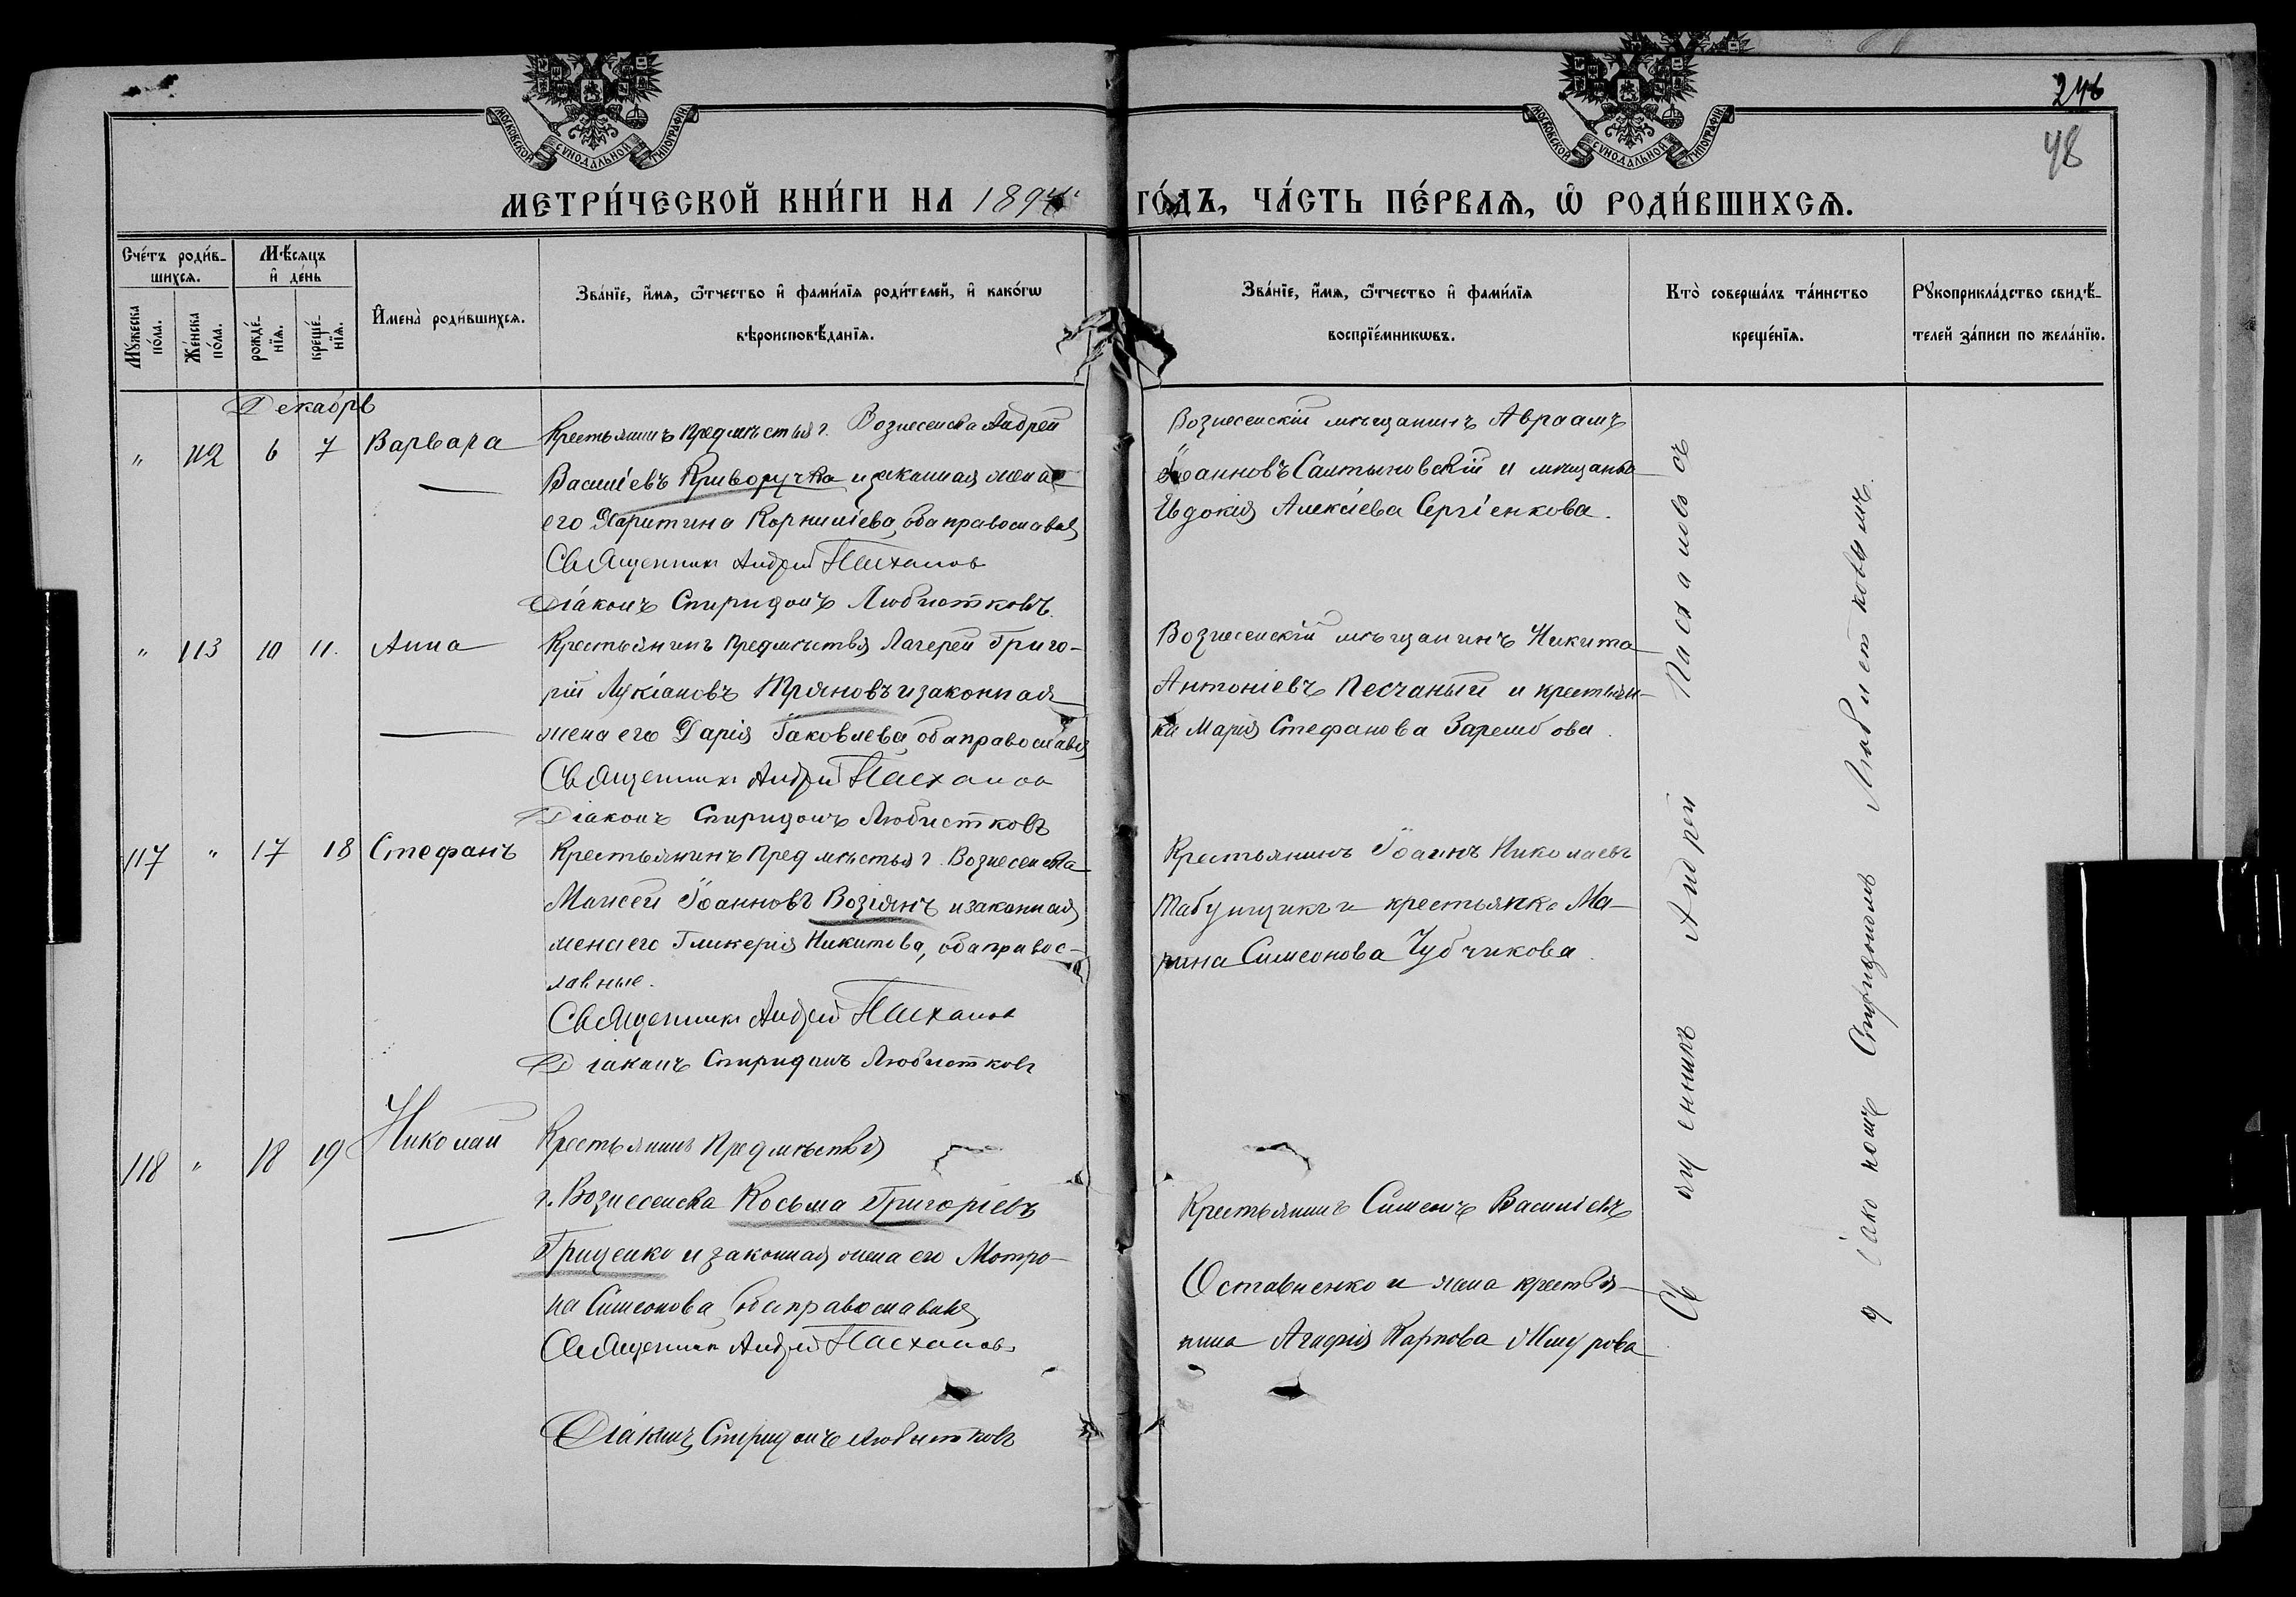 246
48
МОСКОВСКОЙ СУНОДАЛЬНОЙ ТИПОГРАФІИ
МОСКОВСКОЙ СУНОДАЛЬНОЙ ТИПОГРАФІИ
МЕТРИ́ЧЕСКОЙ КНИ́ГИ НА 1894 ГО́ДЪ, ЧА́СТЬ ПЕ́РВАЯ, Ѡ҆ РОДИ́ВШИХСЯ.
Сче́тъ роди́в-
шихся.
Мꙋ́жеска по́ла.
Же́нска по́ла.
Мѣ́сяцъ
и҆ де́нь
рожде́-нїя.
креще́-нїя.
И҆мена̀ роди́вшихся.
Зва́нїе, и҆́мя, ѻ҆́тчество и҆ фами́лїя роди́телей, и҆ како́гѡ
вѣроисповѣ́данїя.
Зва́нїе, и҆́мя, ѻ҆́тчество и҆ фами́лїя
воспрїе́мникѡвъ.
Кто̀ соверша́лъ та́инство
креще́нїя.
Рꙋкоприкла́дство свидѣ́-
телей за́писи по жела́нїю.
Декабрь
" 112 6 7 Варвара
Крестьянинъ предмѣстья г. Вознесенска Андрей
Василіевъ Криворучка и законная жена
его Харитина Корниліева, оба православ
Священникъ Андрей Пасхаловъ
Діаконъ Спиридонъ Любистковъ.
Вознесенскій мѣщанинъ Авраамъ
Іоанновъ Салтыковскій и мѣщанка
Евдокія Алексіева Сергіенкова.
" 113 10 11. Анна
Крестьянинъ предмѣстья Лагерей Григо-
рій Лукіановъ Тряновъ и законная
жена его Дарія Іаковлева, оба православ
Священникъ Андрей Пасхаловъ
Діаконъ Спиридонъ Любистковъ
Вознесенскій мѣщанинъ Никита
Антоніевъ Песчаный и крестьян-
ка Марія Стефанова Зарембова.
117 " 17 18 Стефанъ
Крестьянинъ предмѣстья г. Вознесенска
Моисей Іоанновъ Возіянъ и законная
жена его Гликерія Никитова, оба правос-
лавные.
Священникъ Андрей Пасхаловъ
Діаконъ Спиридонъ Любистковъ
Крестьянинъ Іоаннъ Николаевъ
Табунщикъ и крестьянка Ма-
рина Симеонова Чубчикова.
118 " 18 19 Николай
Крестьянинъ предмѣстья
г. Вознесенска Косьма Григоріевъ
Гриценко и законная жена его Мотро-
на Симеонова, оба православные
Священникъ Андрей Пасхаловъ
Діаконъ Спиридонъ Любистковъ
Крестьянинъ Симеонъ Василіевъ
Оставненко и крестья-
нина Агафія Карпова
Священникъ Андрей Пасхаловъ съ
діакономъ Спиридономъ Любистковымъ.